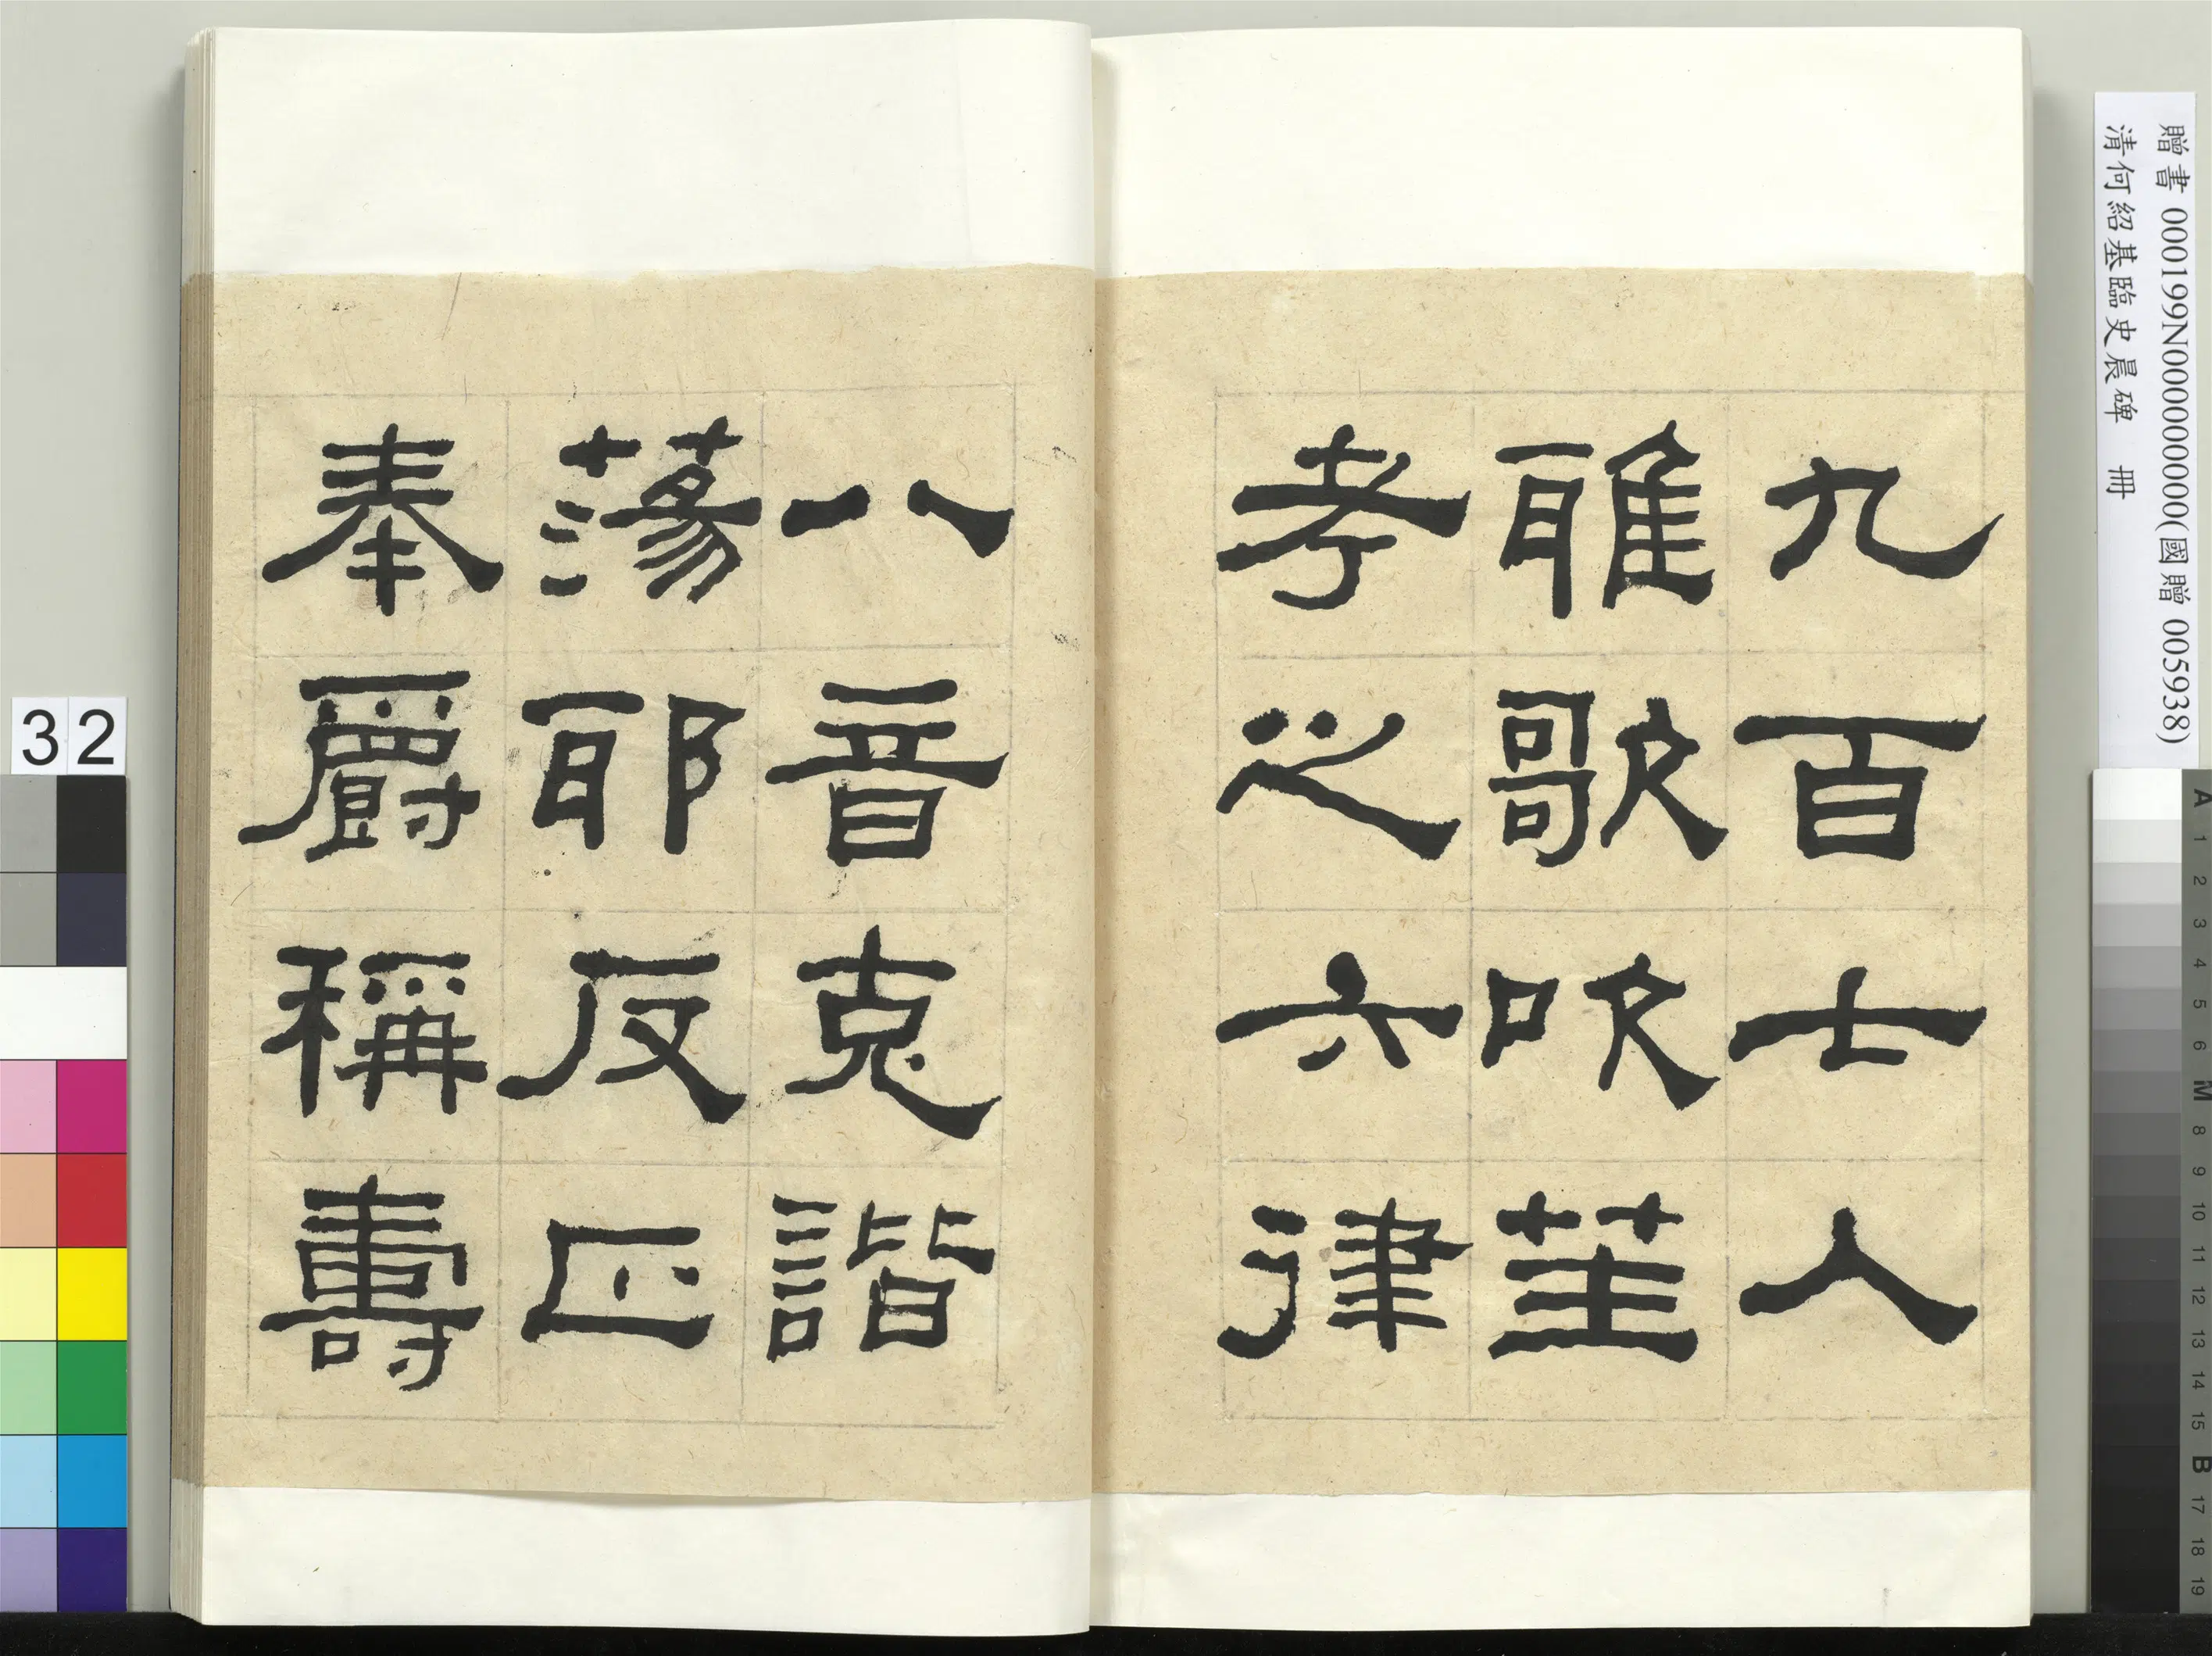 贈書 000199N000000000(國贈 005938)
清何紹基臨史晨碑 冊
九百七人
雅歌吹笙
考之六律
八音克諧
蕩耶反正
奉爵稱壽
32
A 1 2 3 4 5 6 M 8 9 10 11 12 13 14 15 B 17 18 19